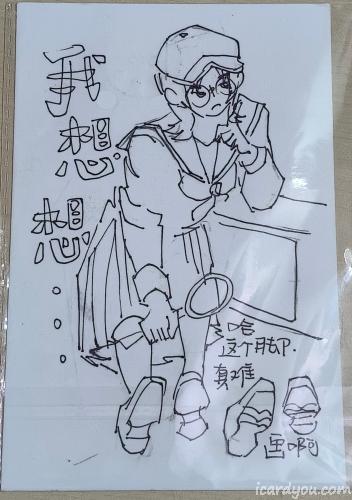 我
想
想
...
哈
这个脚.
真难
画啊
icardyou.com